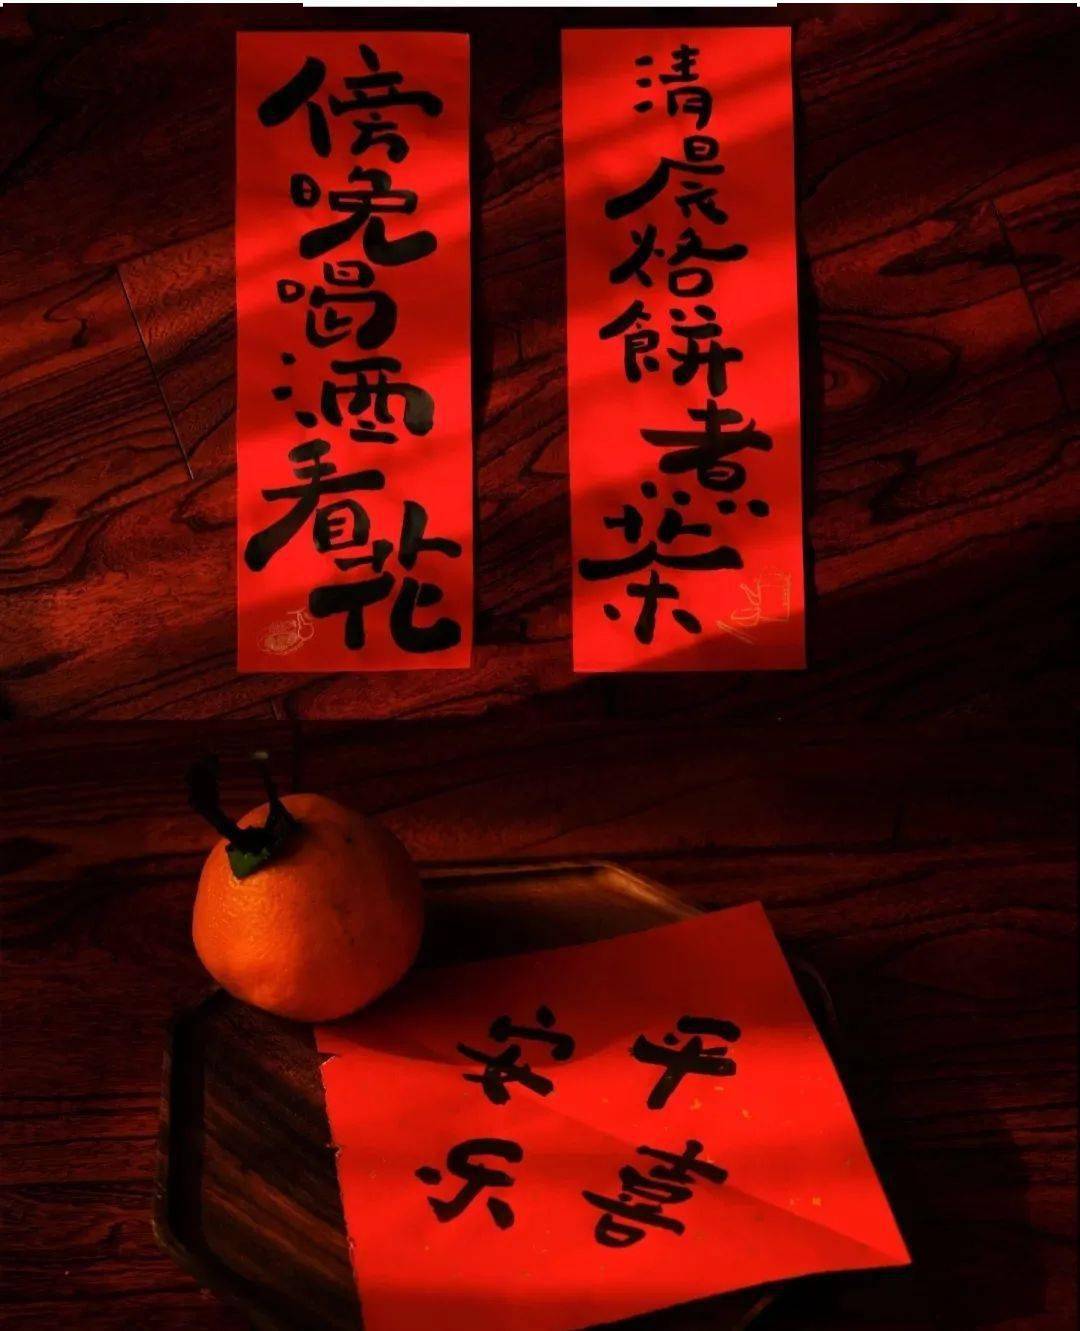 清晨烙餅煮茶
傍晚喝酒看花
平安
喜乐